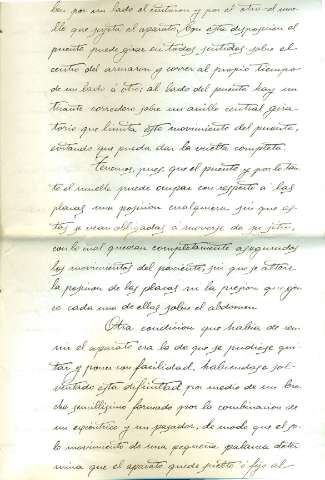 ben por un lado el cinturon y por el otro el mue-
lle que sujeta el aparato. Con esta disposicion el
puente puede girar en todos sentidos sobre el
centro del armazon y correr al propio tiempo
de un lado á otro; al lado del puente hay un
tirante corredero sobre un anillo central gira-
torio que limita este movimiento del puente,
evitando que pueda dar la vuelta completa.
Tenemos, pues, que el puente y por lo tan-
to el muelle puede ocupar con respecto á las
placas una posicion cualquiera sin que es-
tas se vean obligadas a moverse de su sitio,
con lo cual quedan completamente asegurados
los movimientos del paciente, sin que se altere
la posicion de las placas ni la presion que ejer-
ce cada una de ellas sobre el abdomen.
Otra condicion que habia de reu-
nir el aparato era la de que se pudiese qui-
tar y poner con facilidad, habiendose sol-
ventado esta dificultad por medio de un bro-
che sencillisimo formado por la combinacion de
un excéntrico y un pasador, de modo que el so-
lo movimiento de una pequeña palanca deter-
mina que el aparato quede suelto ó fijo al